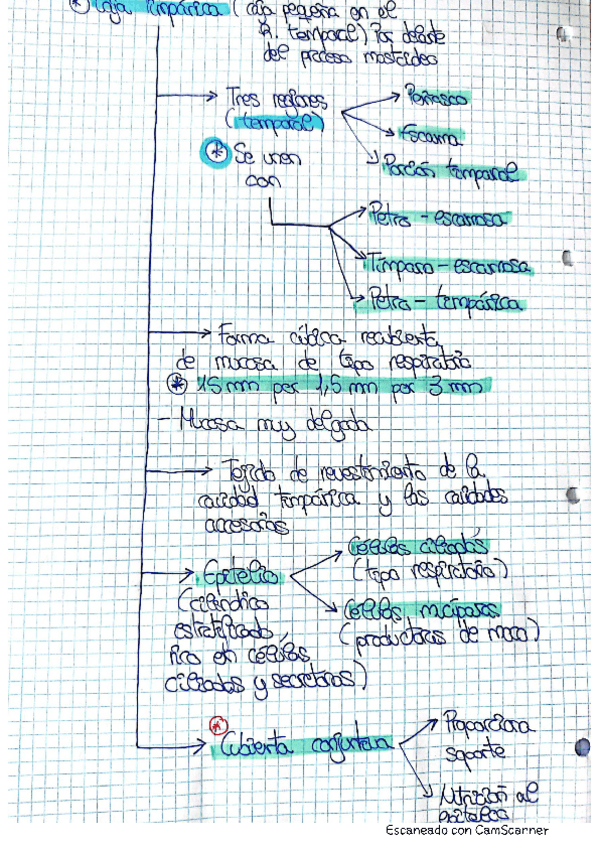 * Caja timpánica (caja pequeña en el
h. temporal) Por delante
del proceso mastoideo
→ Tres regiones
(temporal)
→ Peñasco
→ Escama
→ Porción temporal
* Se unen
con
→ Petro - escamosa
→ Timpano - escamosa
→ Petro - timpánica
→ Forma cúbica recubierta
de mucosa de tipo respiratorio
* 15 mm per 1,5 mm per 3 mm
- Mucosa muy delgada
→ Tejido de revestimiento de la
cavidad timpánica y las cavidades
accesorias
→ Epitelio
(cilíndrico
estratificado,
rico en células
ciliadas y secretoras)
→ Células ciliadas
(tipo respiratorio)
→ Células mucíparas
(productoras de moco)
* → Cubierta conjuntiva
→ Proporciona
soporte
→ Nutrición al
epitelio
Escaneado con CamScanner